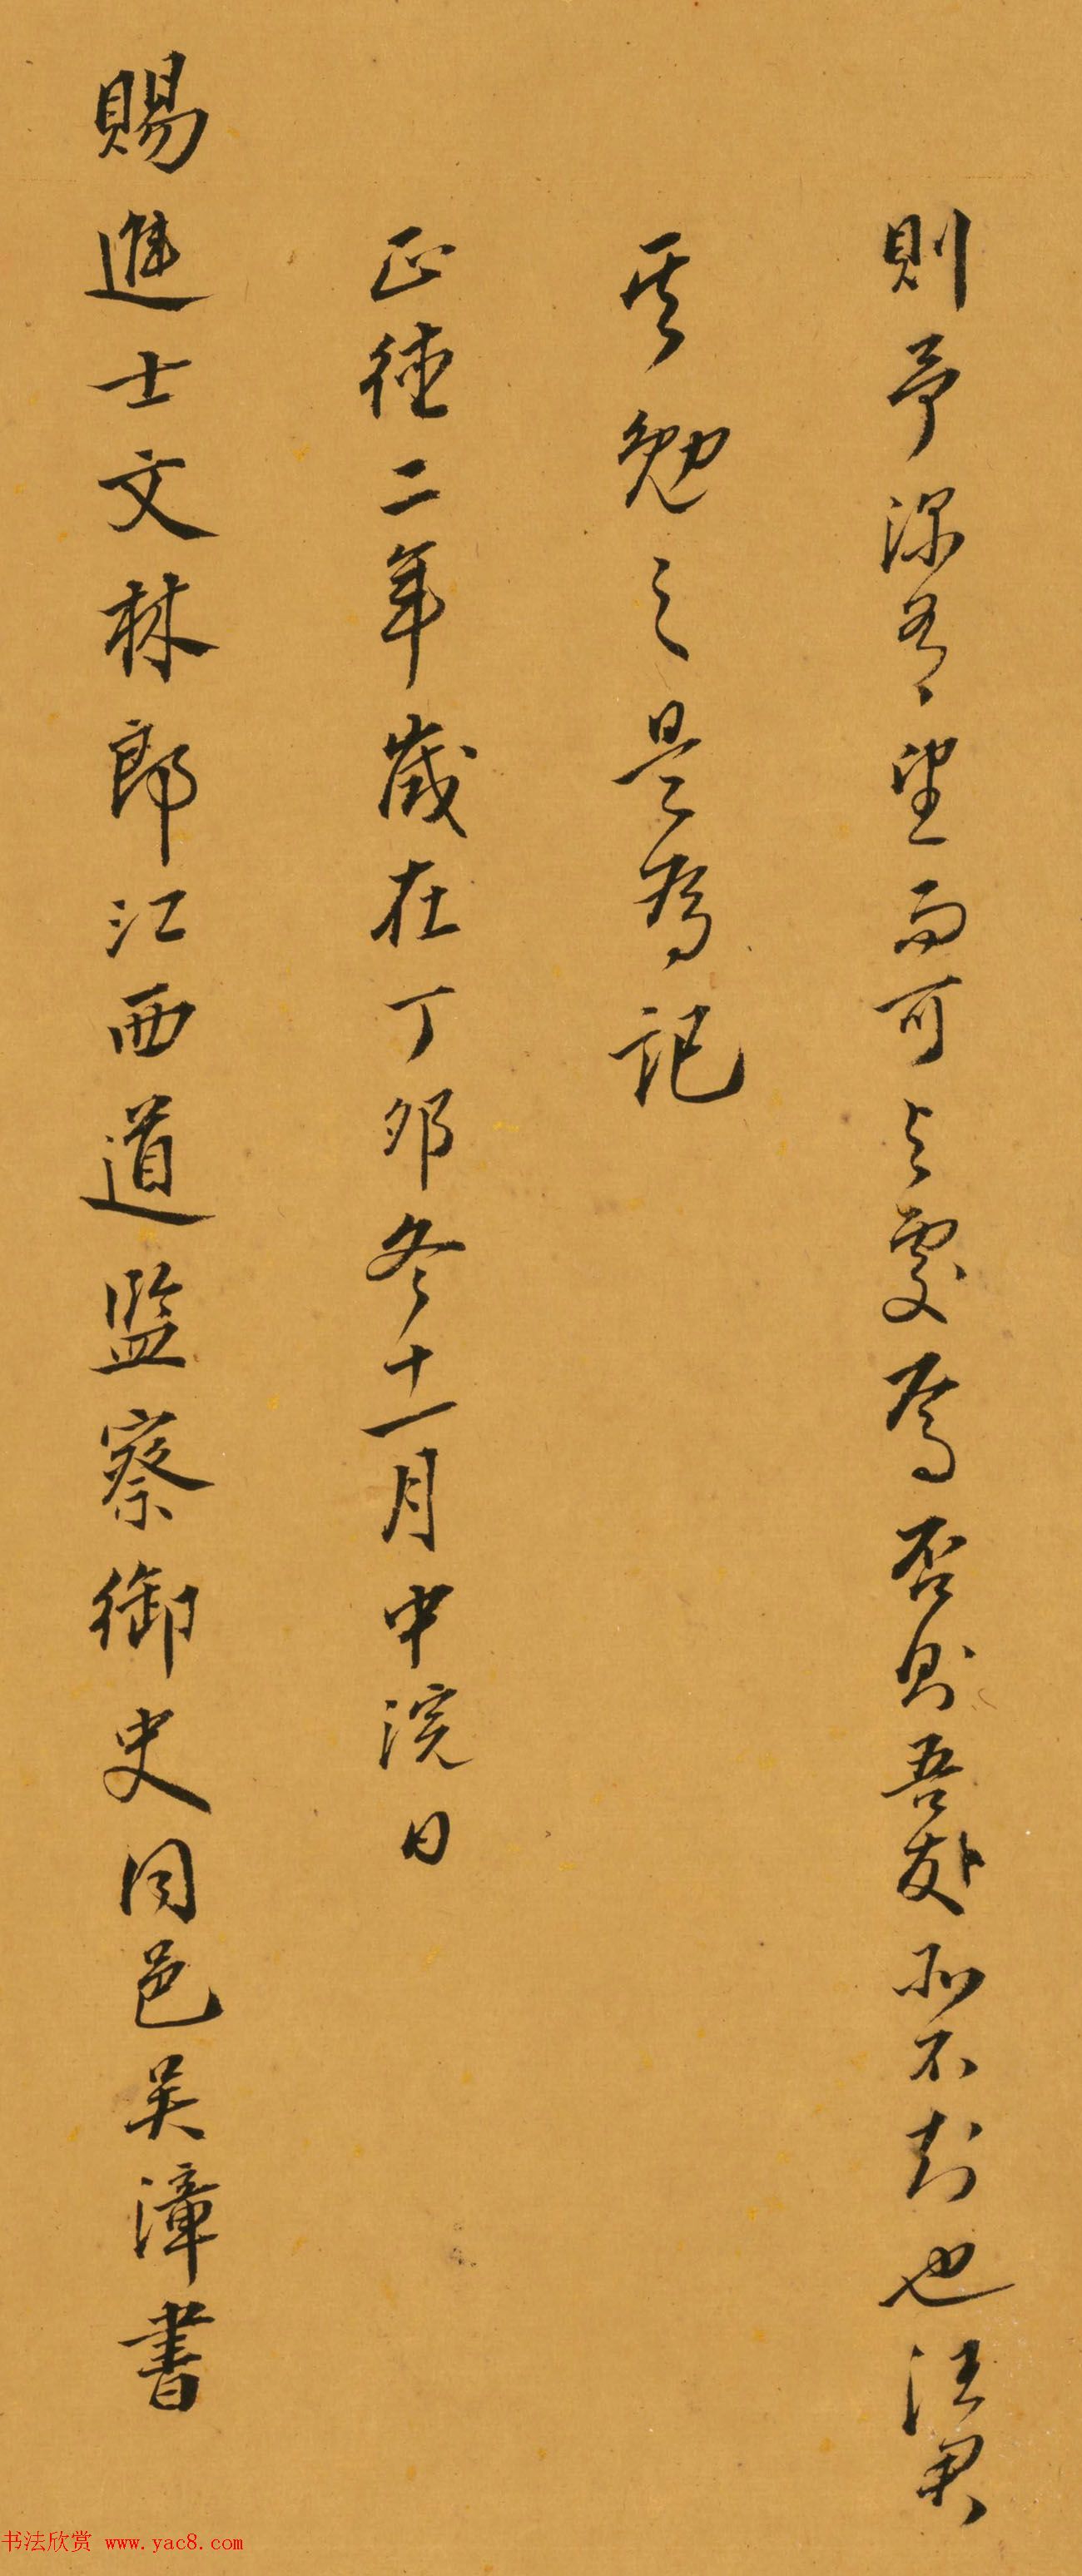 則予深有望而可与處焉否則吾友所不也汪君
其勉之是為記
正德二年歲在丁卯冬十一月中浣日
賜進士文林郎江西道監察御史同邑吳漳書
书法欣赏 www.yac8.com